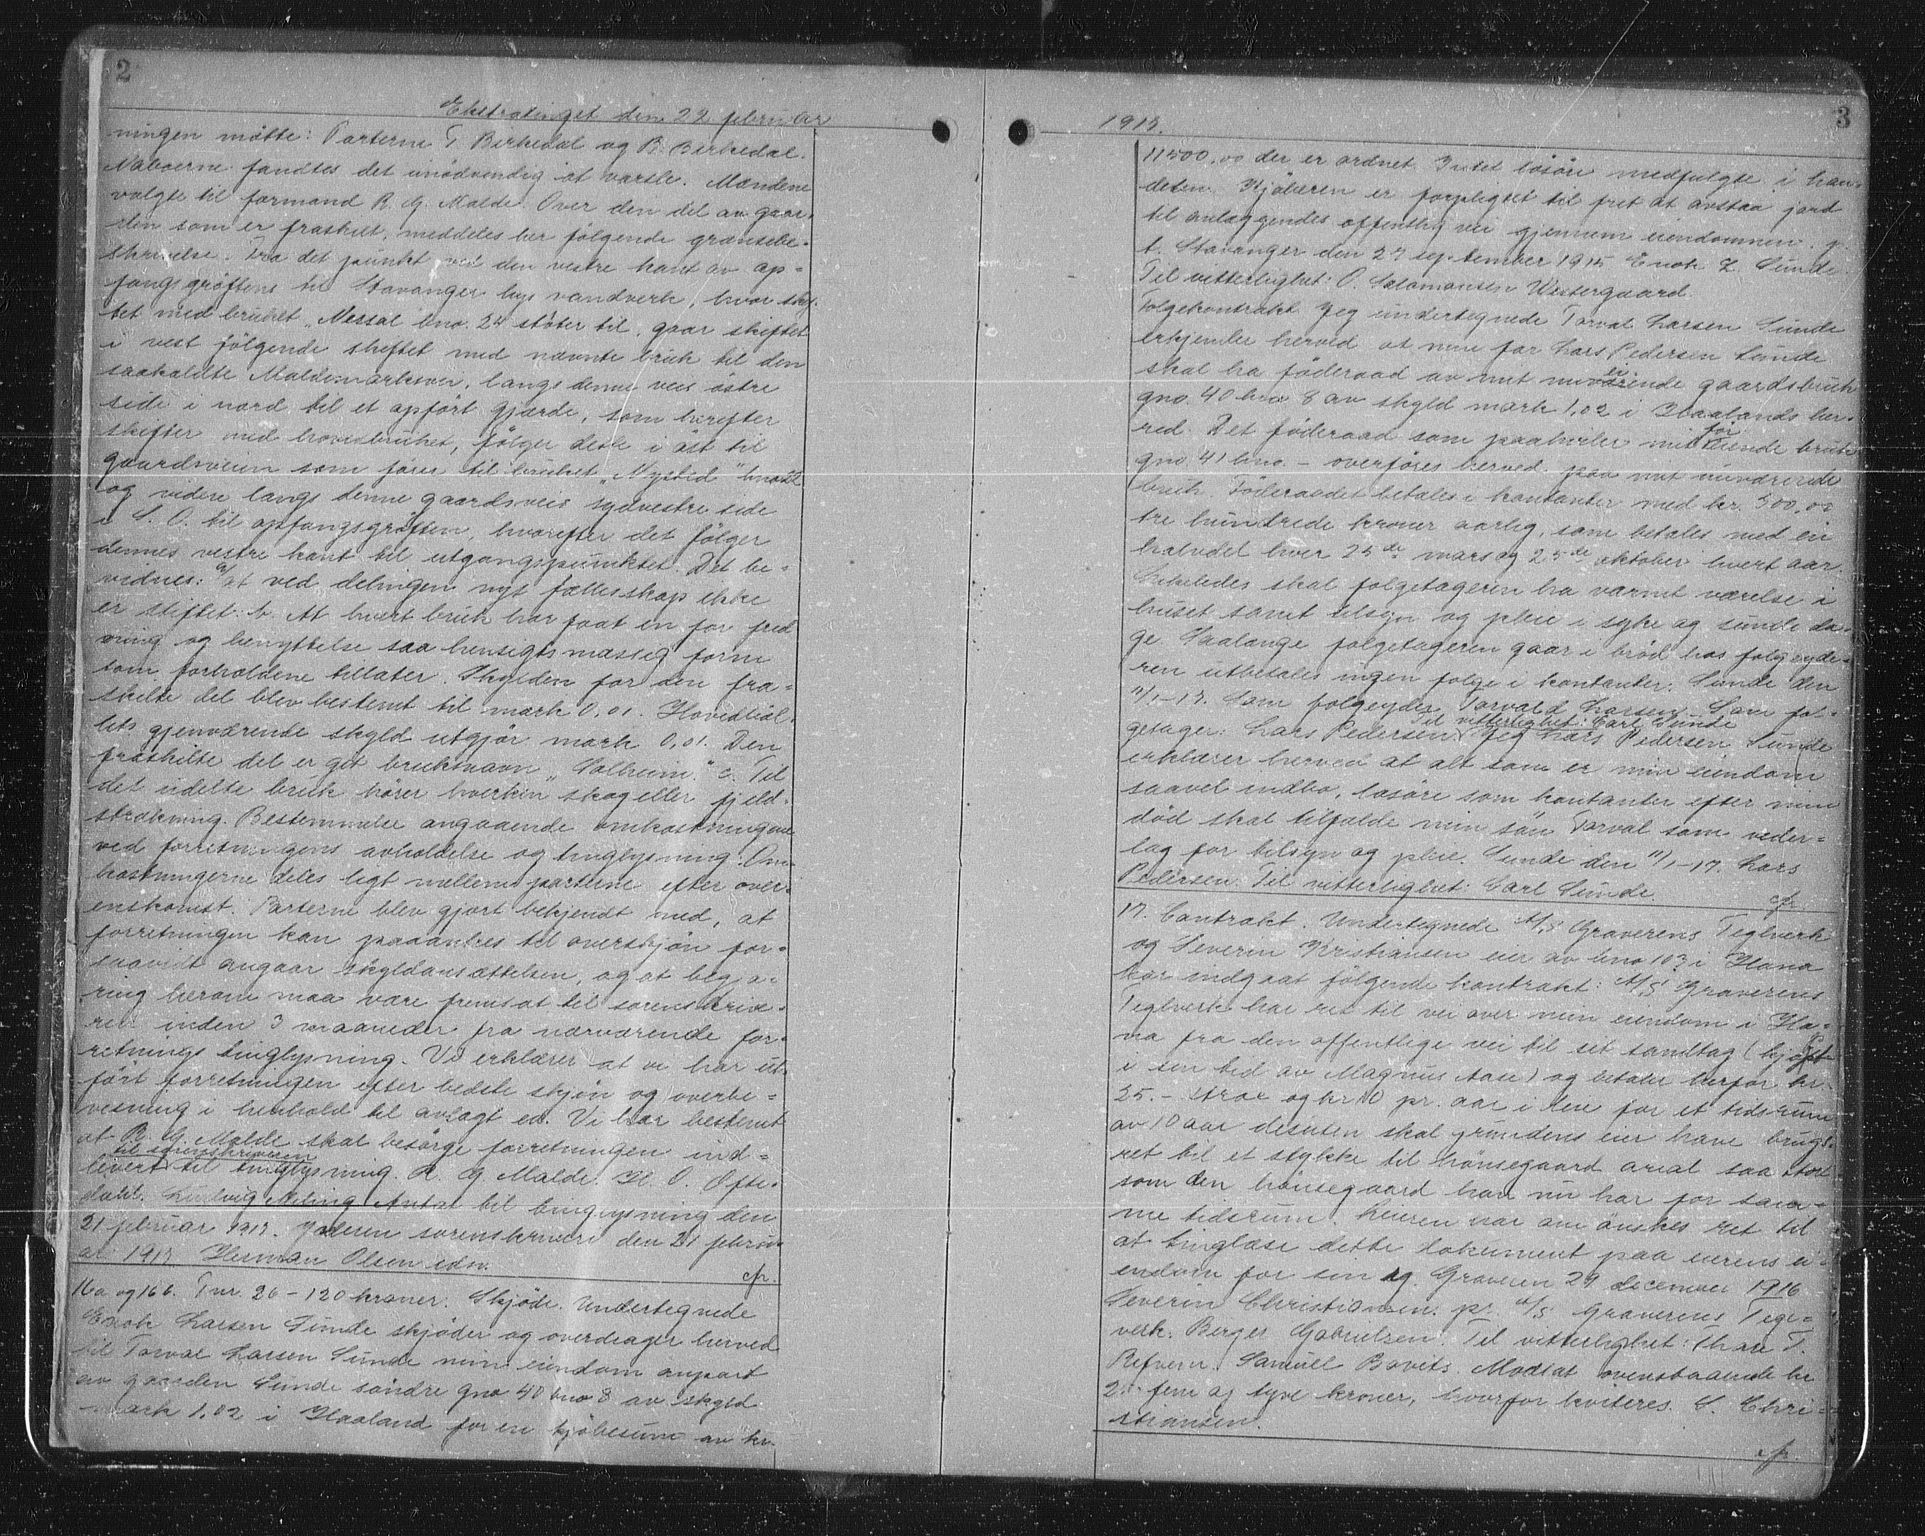 2
Ekstratinget den 22 februar
ningen møtte: Parterne T Birkedal og B. Birkedal.
Naboerne fandtes det unødvendig at varsle. Mændene
valgte til formand R. G. Malde. Over den del av gaar-
den som er fraskilt, meddeles her følgende grænsebe-
skrivelse. Fra det punkt ved den vestre kant av op-
fangsgrøftens til Stavanger bys vandverk, hvor skif-
tet med bruket „Nessal bno. 24 støter til, gaar skiftet
i vest følgende skiftet med nævnte bruk til den
saakaldte Maldemarksvei, langs denne veis østre
side i nord til et opført gjærde, som herefter
skifter med hovedbruket, følger dette i øst til
gaardsveien som fører til bruket „Nystid" bno
og videre langs denne gaardsveis sydvestre side
i S. O. til opfangsgrøften, hvorefter det følger
dennes vestre kant til utgangspunktet. Det be-
vidnes: a/ at ved delingen nyt fællesskap ikke
er stiftet. b. At hvert bruk har faat en for fred
ning og benyttelse saa hensigtsmæssig form
som forholdene tillater. Skylden for den fra-
skilte del blev bestemt til mark 0,01. Hovedbøl-
lets gjenværende skyld utgjør mark 0,01. Den
fraskilte del er git bruksnavn „Solheim." c. Til
det utdelte bruk hører hverken skog eller fjeld-
strækning. Bestemmelse angaaende omkostningene
ved forretningens avholdelse og tinglysning. Om-
kostningerne deles ligt mellem parterne efter over-
enskomst. Parterne blev gjort bekjendt med, at
forretningen kan paaankes til overskjøn for-
saavidt angaar skyldansættelsen, og at begjæ-
ring herom maa være fremsat til sorenskrive-
ren inden 3 maaneder fra nærværende for-
retnings tinglysning. Vi erklærer at vi har ut-
ført forretningen efter bedste skjøn og overbe-
visning i henhold til avlagt ed. Vi har bestemt
at R. G. Malde skal besørge forretningen ind-
til sorenskriveren
levert til tinglysning. R. G. Malde. H. O. Ofte-
dahl. Ludvig Meling Antat til tinglysning den
21 februar 1917. Jæderen sorenskriveri den 21 febru-
ar 1917 Herman Olsen edsv.
cfr.
16a og 16b. Tnr. 26 - 120 kroner. Skjøde. Undertegnede
Enok Larsen Sunde skjøder og overdrager herved
til Torval Larsen Sunde min eiendom anpart
av gaarden Sunde søndre gno 40 bno 8 av skyld
mark 1,02 i Haaland for en kjøbesum av kr.
3
1915.
11500,00 der er ordnet. Intet løsøre medfulgte i han-
delen. Kjøberen er forpligtet til fret at avstaa jord
til anlæggendes offentlig vei gjennem eiendommen. p.
t. Stavanger den 27 september 1915 Enok L. Sunde.
Til vitterlighet: O. Salomonsen Westergaard.
Folgekontrakt. Jeg undertegnede Torval Larsen Sunde
erkjender herved at min far Lars Pedersen Sunde
skal ha føderaad av mit nuværende gaardsbruk
gno. 40 bno 8 av skyld mark 1,02 i Haalands her-
red. Det føderaad som paahviler mit før eiende bruk
gno. 41 bno. - overføres herved paa mit nuværende
bruk. Føderaadet betales i kontanter med kr. 300,00
tre hundrede kroner aarlig, som betales med en
halvdel hver 25de mars og 25de oktober hvert aar.
Likeledes skal folgetageren ha varmt værelse i
huset samt tilsyn og pleie i syke og sunde da-
ge. Saalænge folgetageren gaar i brød hos folgeyde-
ren utbetales ingen folge i kontanter. Sunde den
11/1-17. Som folgeyder Torvald Larsen. Som fol-
Til vitterlighet: Carl Sunde
getager: Lars Pedersen. Jeg Lars Pedersen Sunde
erklærer herved at alt som er min eiendom
saavel indbo, løsøre som kontanter efter min
død skal tilfalde min søn Torval som veder-
lag for tilsyn og pleie. Sunde den 11/1-17. Lars
Pedersen. Til vitterlighet: Carl Sunde.
cfr
17. Contrakt. Undertegnede A/S Graverens Teglverk
og Severin Kristiansen eier av bno 103 i Hana
har indgaat følgende kontrakt: A/S Graverens
Teglverk har ret til vei over min eiendom i Ha-
na fra den offentlige vei til set sandtag (kjøpt
i sin tid av Magnus Aase) og betaler herfor kr.
25.- strax og kr 10 pr. aar i leie for et tidsrum
av 10 aar desuten skal grundens eier have bruks-
ret til et stykke til hønsegaard areal saa stort
som den hønsegaard han nu har for sam-
me tidsrum. Leieren har om ønskes ret til
at tinglæse dette dokument paa eierens ei-
endom for sin  . Graveren 29 december 1916
Severin Christiansen. pr. A/S Graverens Tegl-
verk. Berger Gabrielsen. Til vitterlighet: T.
Refvem. Samuel Bovits. Modtat ovenstaaende kr
25 fem og tyve kroner, hvorfor kviteres. S. Chri-
stiansen.
cfr.